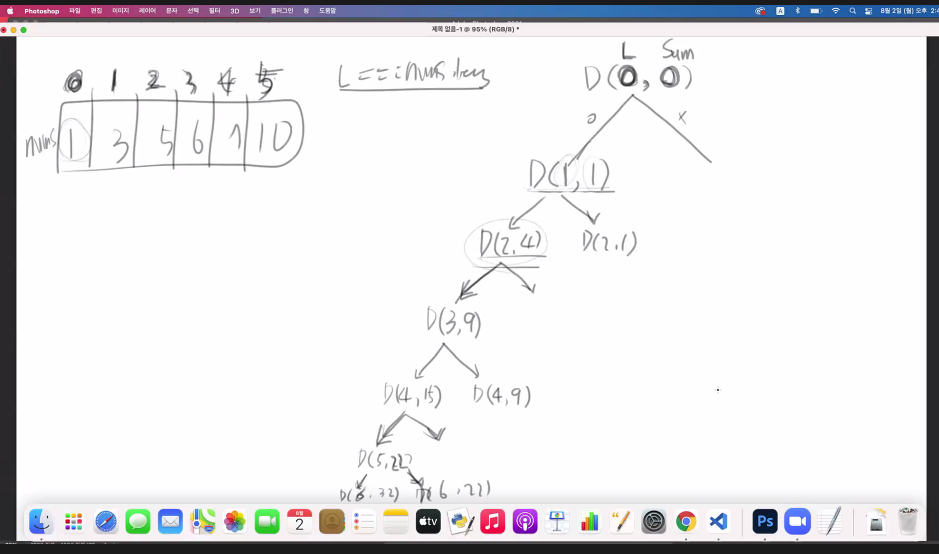 Photoshop 파일 편집 이미지 레이어 문자 선택 필터 3D 보기 플러그인 창 도움말 A 8월 2일 (월) 오후 2:4
제목 없음-1 @ 95% (RGB/8) *
0 1 2 3 4 5
nums 1 3 5 6 7 10
L Sum
D(0, 0)
o x
D(1, 1)
D(2, 4) D(2, 1)
D(3, 9)
D(4, 15) D(4, 9)
D(5, 22)
D(6, 32) D(6, 22)
8월
2
tv
Ps